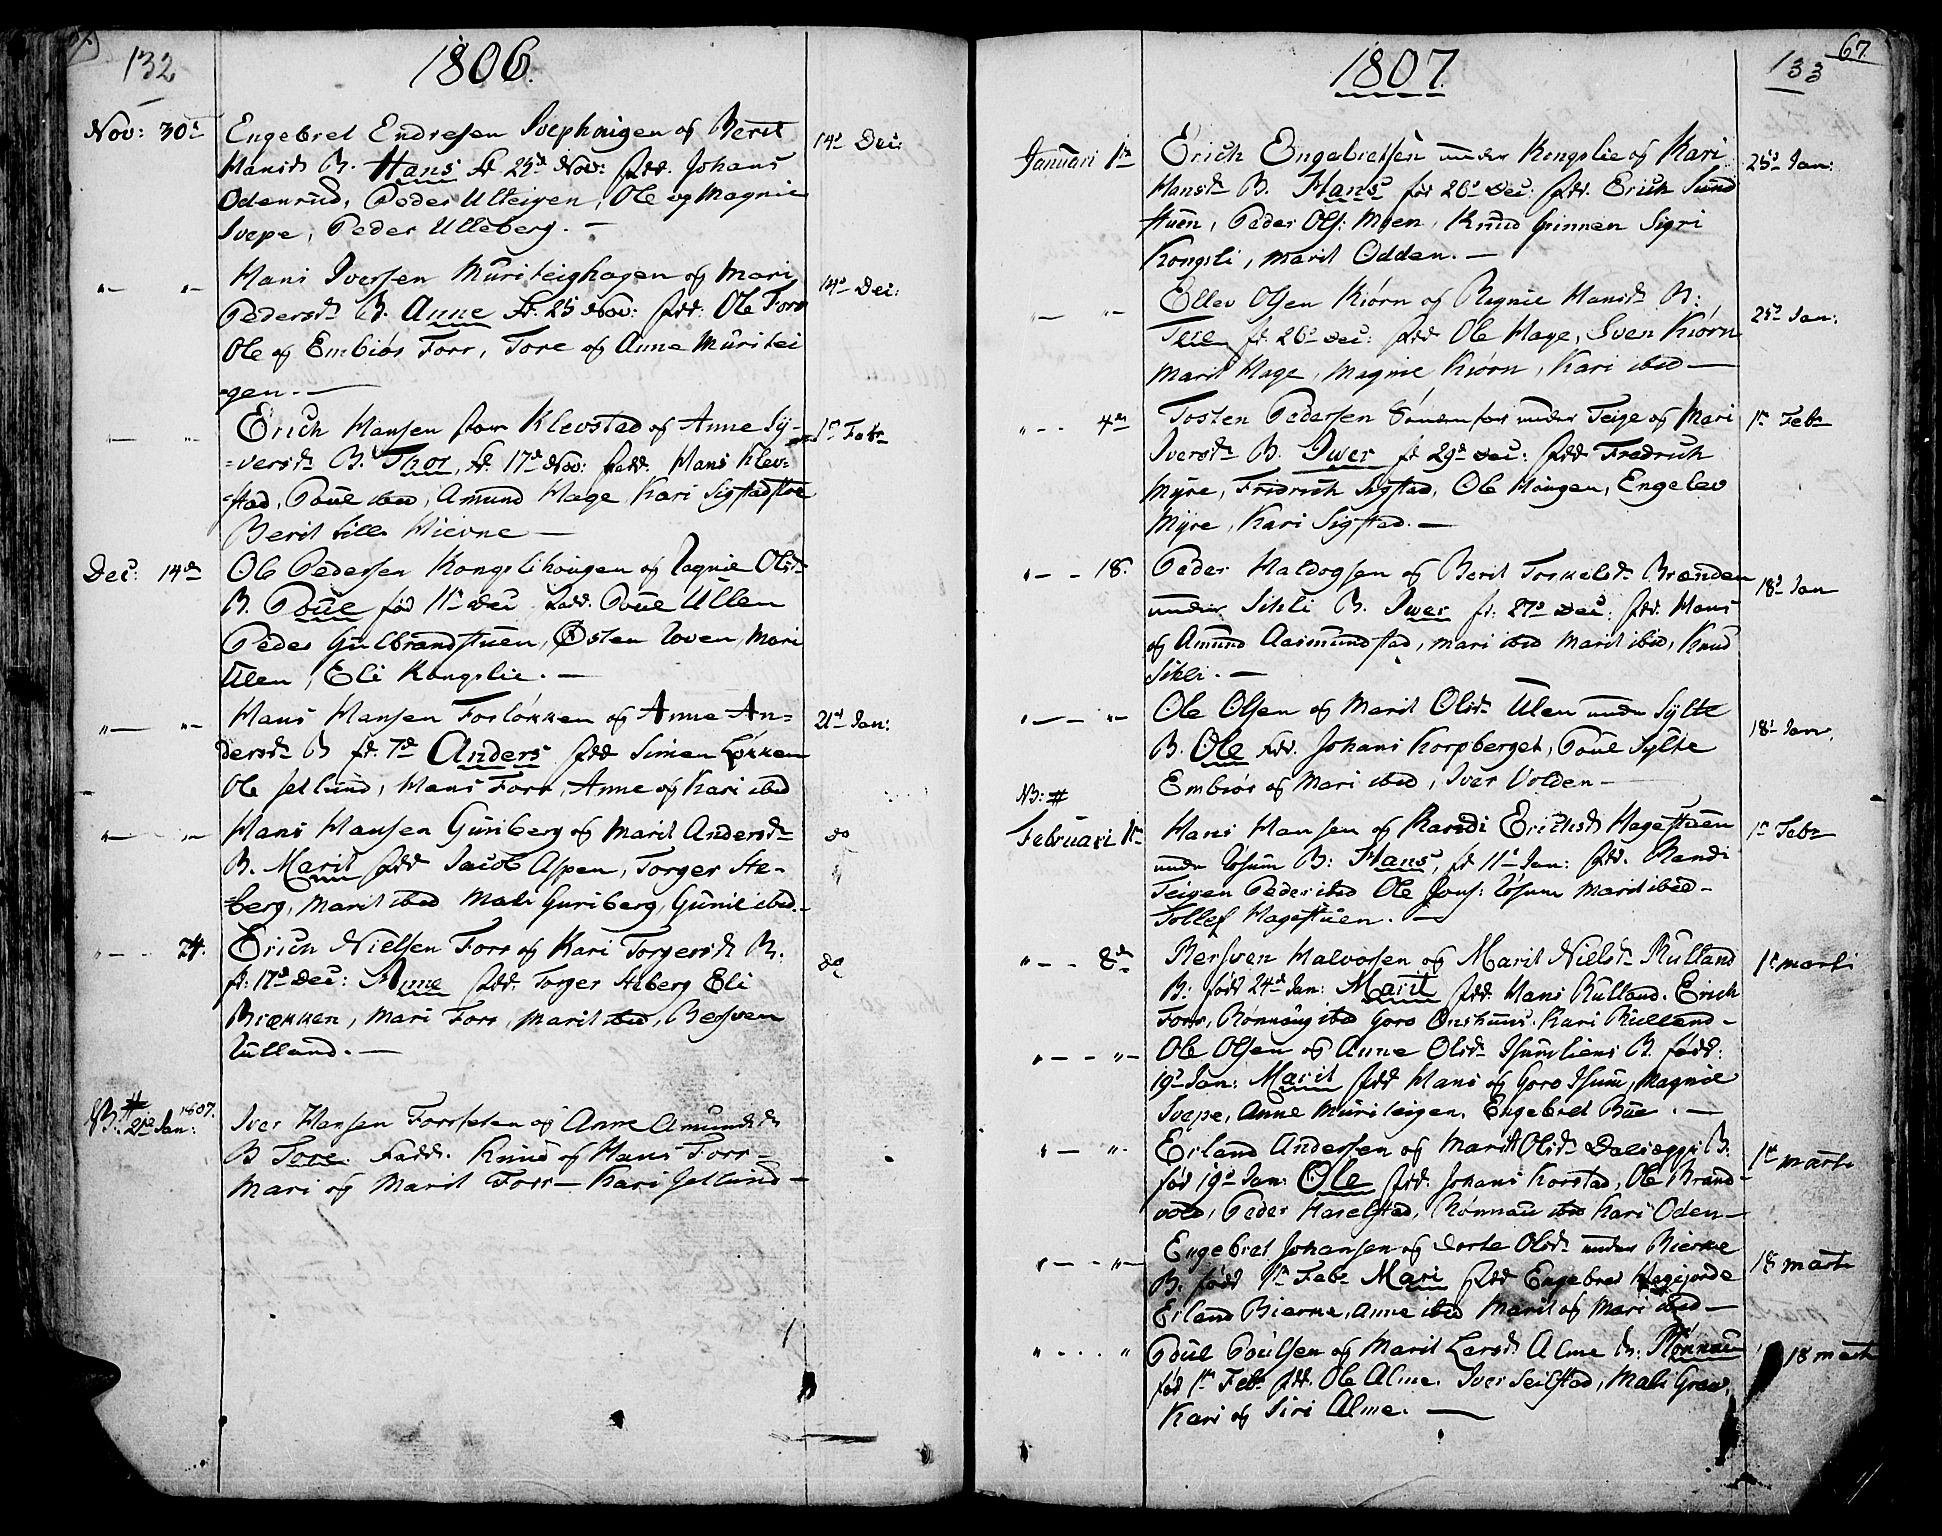 132
1806.
Nov: 30te Engebret Endresen Svephougen og Berit 14d Dec:
Hansd. B. Hans fd. 24d Nov: fdd. Johans
Odenrud, Peder Ulteigen, Ole og Magnie
Svepe, Peder Ulleberg. —
"— "— Hans Iversen Muriteighagen og Mari 14d Dec:
Pedersd. B. Anne fd. 25 Nov: fdd: Ole Forr
Ole og Embiør Forr, Tore og Anne Muritei
gen. —
"— "— Erich Hansen Klevstad og Anne Sy- 1te Febr
=versd. B. Thor, fd. 17d Nov: fadd. Hans Klev=
=stad, Poul ibid, Amund Hage, Kari Sigstadstue
Berit Lille Hievne —
Dec: 14de Ole Pedersen Kongslihougen og Ragnie Olsd.
B. Poul fød 11te Dec fadd. Poul Ullen
Peder Gulbrandstuen, Østen Loven, Mari
Ulen, Eli Kongslie. —
"— "— Hans Hansen Forløkken og Anne An= 21d Jan:
dersd. B fd. 7d Anders fdd Simen Løkken
Ole Jetlund, Hans Forr, Anne og Kari ibid
"— "— Hans Hansen Guriberg og Marit Andersd. do
B. Marit fdd Jacob Aspen, Torger Ste-
=berg, Marit ibid Mali Guriberg, Gunil ibid. -
"— - 24. Erich Nielsen Forr og Kari Torgersd. B. do
fd. 17d Dec: Anne fdd. Torger Steberg Eli
Brækken, Mari Forr, Marit ibid, Bersven
Rulland. —
NB. # 21de Jan: 1807. Iver Hansen Forr og Anne Amundsd.
B Tore. Fadd. Knud og Hans Forr —
Mari og Marit Forr — Kari Jetlund —
1807.
133
67.
Januari 1te Erich Engebretsen under Kongslie og Kari 25d Jan:
Hansd. B. Hans fød 26d Dec: fdd. Erich Sund
stuen, Peder Ols: Moen, Knud Grinnen Sigri
Kongsli, Marit Odden. —
"— "— Ellev Olsen Kiørn og Ragnie Hansd. B: 25d Jan:
fd. 26d Dec: fdd Ole Hage, Sven Kiørn
Marit Hage, Magnie Kiørn, Kari ibid —
"- - 4de Tosten Pedersen Søndenfor under Teige og Mari 1te Febr
Iversd. B. Iwer fd 29d Dec: fdd Fredrich
Myre, Fridrich Sigstad, Ole Hougen, Engelev
Myre, Kari Sigstad. —
"— - 18. Peder Haldogsen og Berit Torkelsd. Brænden 18d Jan
under Sikli B. Iwer fd. 27d Dec: fdd. Hans
og Amund Aasmundstad, Mari ibid Marit ibid, Knud
Sikli. —
"— - "— Ole Olsen og Marit Olsd. Ulen under Sylte 18d Jan.
B. Ole fdd. Johans Korpberget, Poul Sylte
Embiør og Mari ibid, Iver Volden —
NB: #
Februari 1te Hans Hansen og Randi Erichsd. Hagestuen 1te Febr
under Løsum B: Hans, fd 11d Jan: fdd. Randi
Teigen Peder ibid Ole Jons: Løsum Marit ibid -
Tollef Hagestuen. —
"— - 8de Bersven Halvorsen og Marit Nielsd. Rulland 1te Marti
B: født 24d Jan: Marit fdd. Hans Rulland. Erich
Forr, Rønnaug ibid Goro Onshuus. Kari Rulland -
"— - "— Ole Olsen og Anne Olsd. Isumliens B. født:
19d Jan: Marit fdd Hans og Goro Isum, Magnie
Svepe, Anne Muriteigen, Engebret Bue. —
"— "- Erland Andersen og Marit Olsd. Dalseggi B. 1te Marti
fød 19d Jan: Ole fdd. Johans Korstad, Ole Brand-
vold, Peder Harelstad, Rønnau ibid Kari Oden —
"— - "— Engebret Johansen og Dorte Olsd. under Bierne 18 Marti
B. født 1te Febr Mari fdd Engebret Hagejorde
Erland Bierne, Anne ibid Marit og Mari ibid —
"- . . . " Poul Poulsen og Marit Larsd. Alme B: Rønnau 18 Marti
fød 1te Febr fdd. Ole Alme. Iver Seilstad, Mali Grav,
Kari og Siri Alme. —